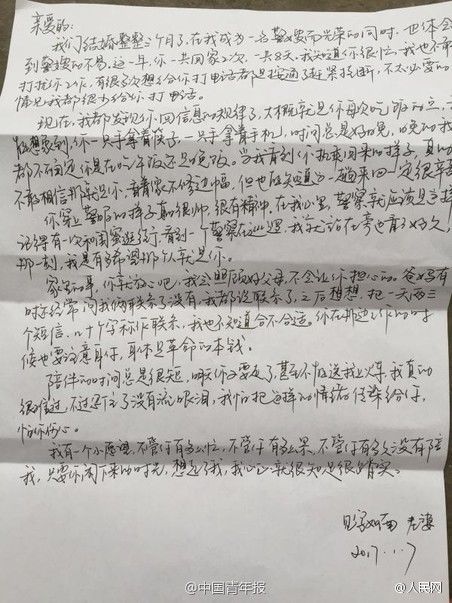 亲爱的:
我们结婚整整三个月了,在我成为一名警嫂而光荣的同时,也体会
到警嫂的不易,这一年,你一共回家2次,一共8天,我知道你很忙,我也不敢
打扰你工作,有很多次想给你打电话都是接通了赶紧挂断,不太必要的
情况我都很少给你打电话。
现在,我都发现你回信息的规律了,大概就是你每次吃饭的点,我
能想象到,你一只手拿着筷子,一只手拿着手机,时间总是好的晚,晚的我
都不确定你是在吃午饭还是晚饭。当我看到你执勤回来的样子,真的
不敢相信那就是你,看着你不修边幅,但也能知道这一趟来回一定很辛苦
你穿上警服的样子真的很帅,很有精神,在我心里,警察就应该是这样
记得有一次和闺蜜逛街,看到一个警察在巡逻,我就站在旁边看了好久,
那一刻,我是有多希望那个人就是你。
家里的事,你就放心吧,我会照顾好父母,不会让你担心的。爸妈有
时经常问我俩联系了没有,我都说联系了,之后想想,把一天两三
个短信,几十个字称作联系,我也不知道合不合适。你在那边工作的时
候也要注意身体,身体是革命的本钱。
陪伴的时间总是很短,明天你又要走了,甚至不能送我上火车,我真的
很难过,不过还好没有流眼泪,我怕把这样的情绪传染给你,
怕你伤心。
我有一个小愿望,不管你有多忙,不管你有多累,不管你有多久没有陪
我,只要你闲下来的时光,想起了我,我心里就很知足很踏实。
见字如面 老婆
2017.1.7
@中国青年报
@人民网